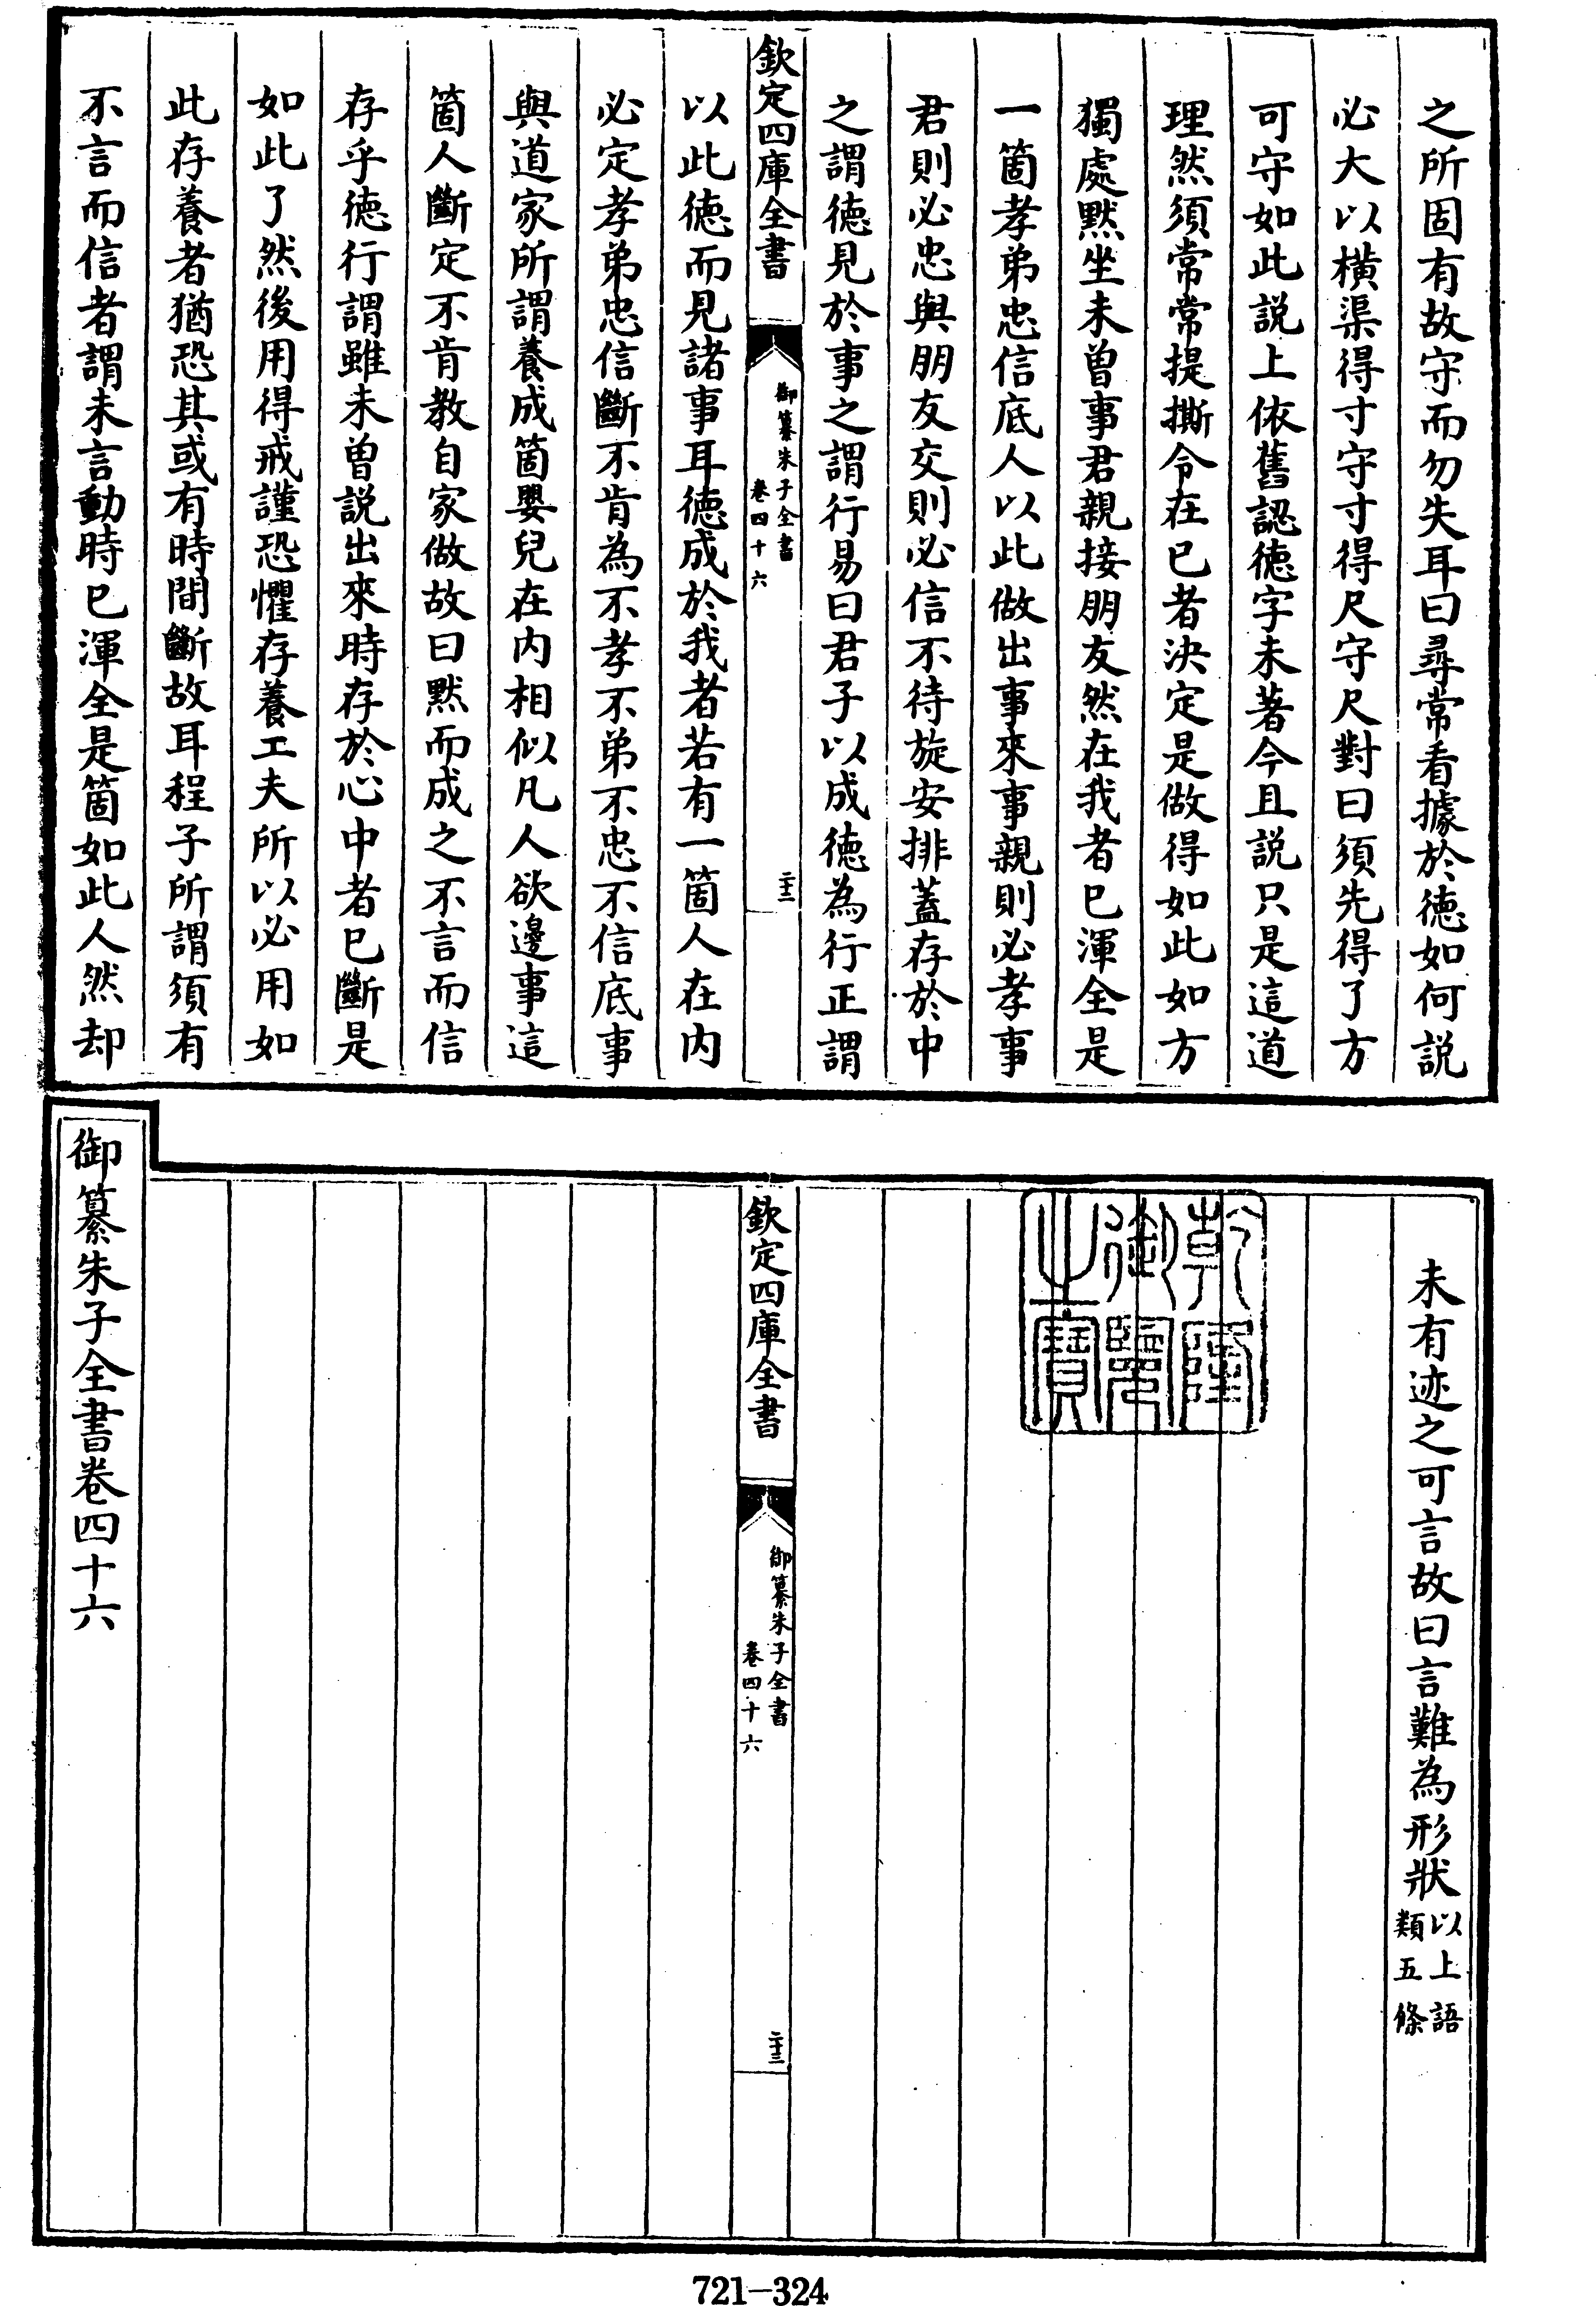 之所固有故守而勿失耳曰尋常看據於徳如何説
必大以橫渠得寸守寸得尺守尺對曰須先得了方
可守如此説上依舊認徳字未著今且説只是這道
理然須常常提撕令在已者決定是做得如此如方
獨處黙坐未曽事君親接朋友然在我者已渾全是
一箇孝弟忠信底人以此做出事來事親則必孝事
君則必忠與朋友交則必信不待旋安排葢存於中
之謂徳見於事之謂行易曰君子以成徳為行正謂
欽定四庫全書
御纂朱子全書
卷四十六
二十二
以此徳而見諸事耳徳成於我者若有一箇人在内
必定孝弟忠信斷不肯為不孝不弟不忠不信底事
與道家所謂養成箇嬰兒在内相似凡人欲邊事這
箇人斷定不肯教自家做故曰黙而成之不言而信
存乎徳行謂雖未曽説出來時存於心中者已斷是
如此了然後用得戒謹恐懼存養工夫所以必用如
此存養者猶恐其或有時間斷故耳程子所謂須有
不言而信者謂未言動時已渾全是箇如此人然却
未有迹之可言故曰言難為形狀以上語類五條
乾隆御覽之寶
欽定四庫全書
御纂朱子全書
卷四十六
二十三
御纂朱子全書卷四十六
721-324